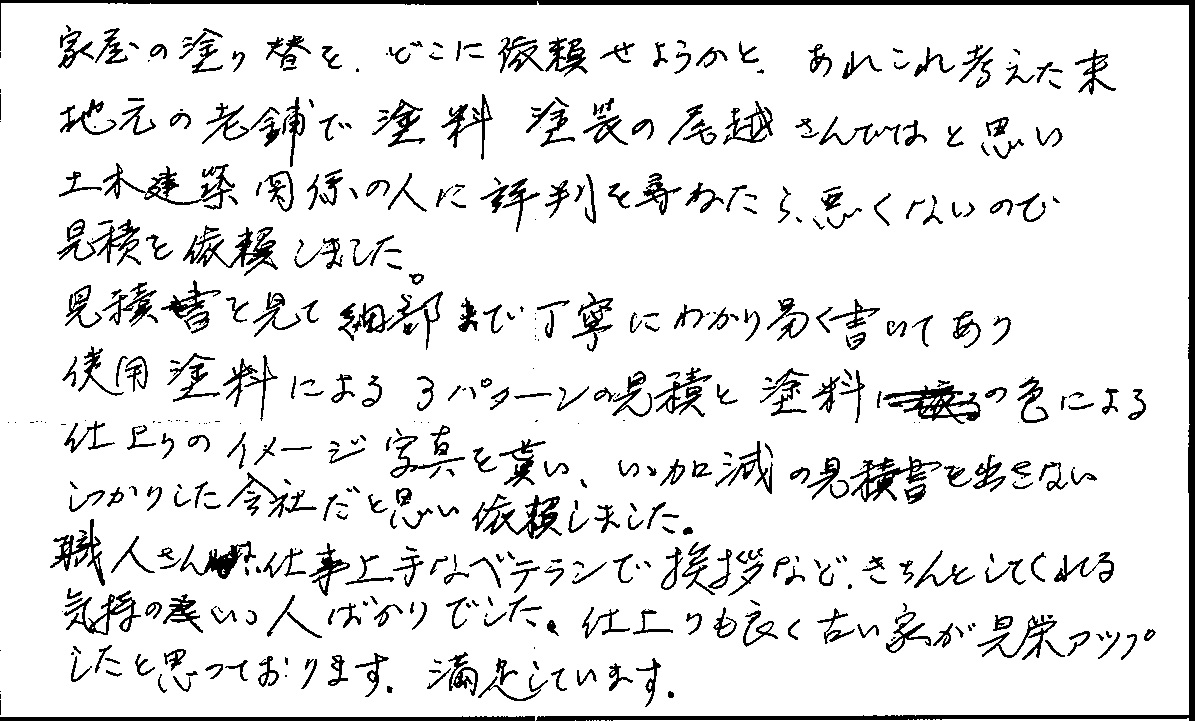 家屋の塗り替を、どこに依頼せようかと、あれこれ考えた末
地元の老舗で塗料 塗装の尾越さんではと思い
土木建築関係の人に評判を尋ねたら、悪くないので
見積を依頼しました。
見積書を見て細部まで丁寧にわかり易く書いてあり
使用塗料による3パターンの見積と塗料の色による
仕上りのイメージ写真を貰い、いい加減の見積書を出さない
しっかりした会社だと思い依頼しました。
職人さんは、仕事上手なベテランで挨拶など、きちんとしてくれる
気持の良いい人ばかりでした。仕上りも良く古い家が見栄アップ
したと思っております。満足しています。